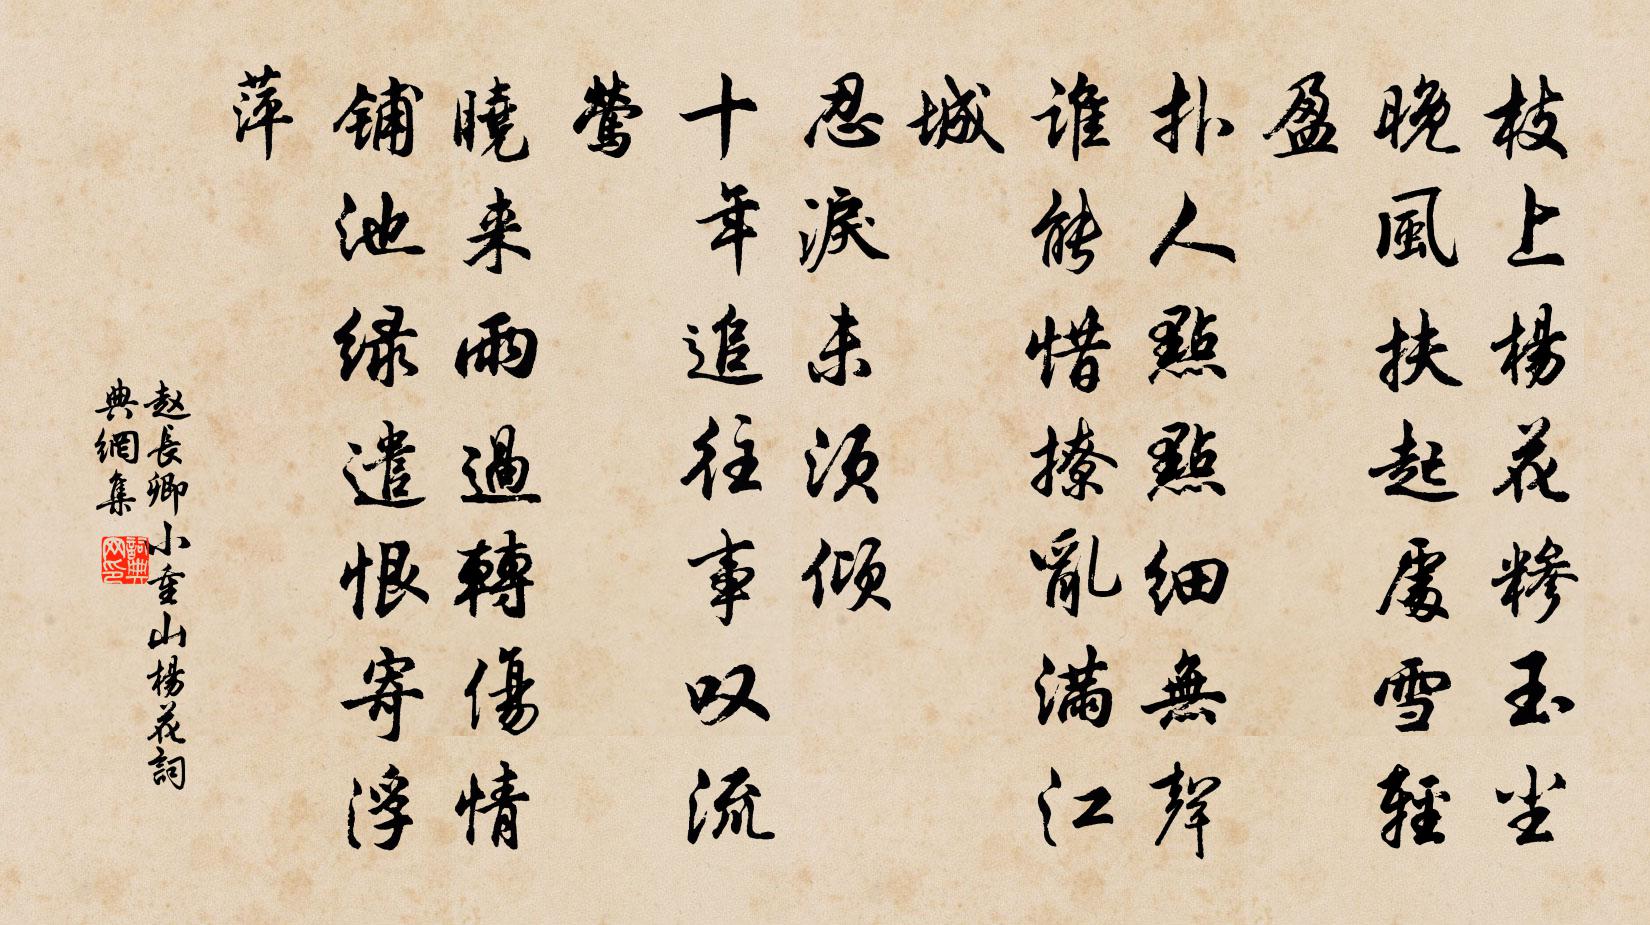 枝上楊花糝玉尘
晚風扶起處雪輕
盈
扑人點點細無聲
谁能惜撩亂满江
城
忍淚未须倾
十年追往事叹流
莺
曉来雨過轉傷情
铺池绿遣恨寄浮
萍
赵長卿小重山楊花詞
典網集
詞典网印